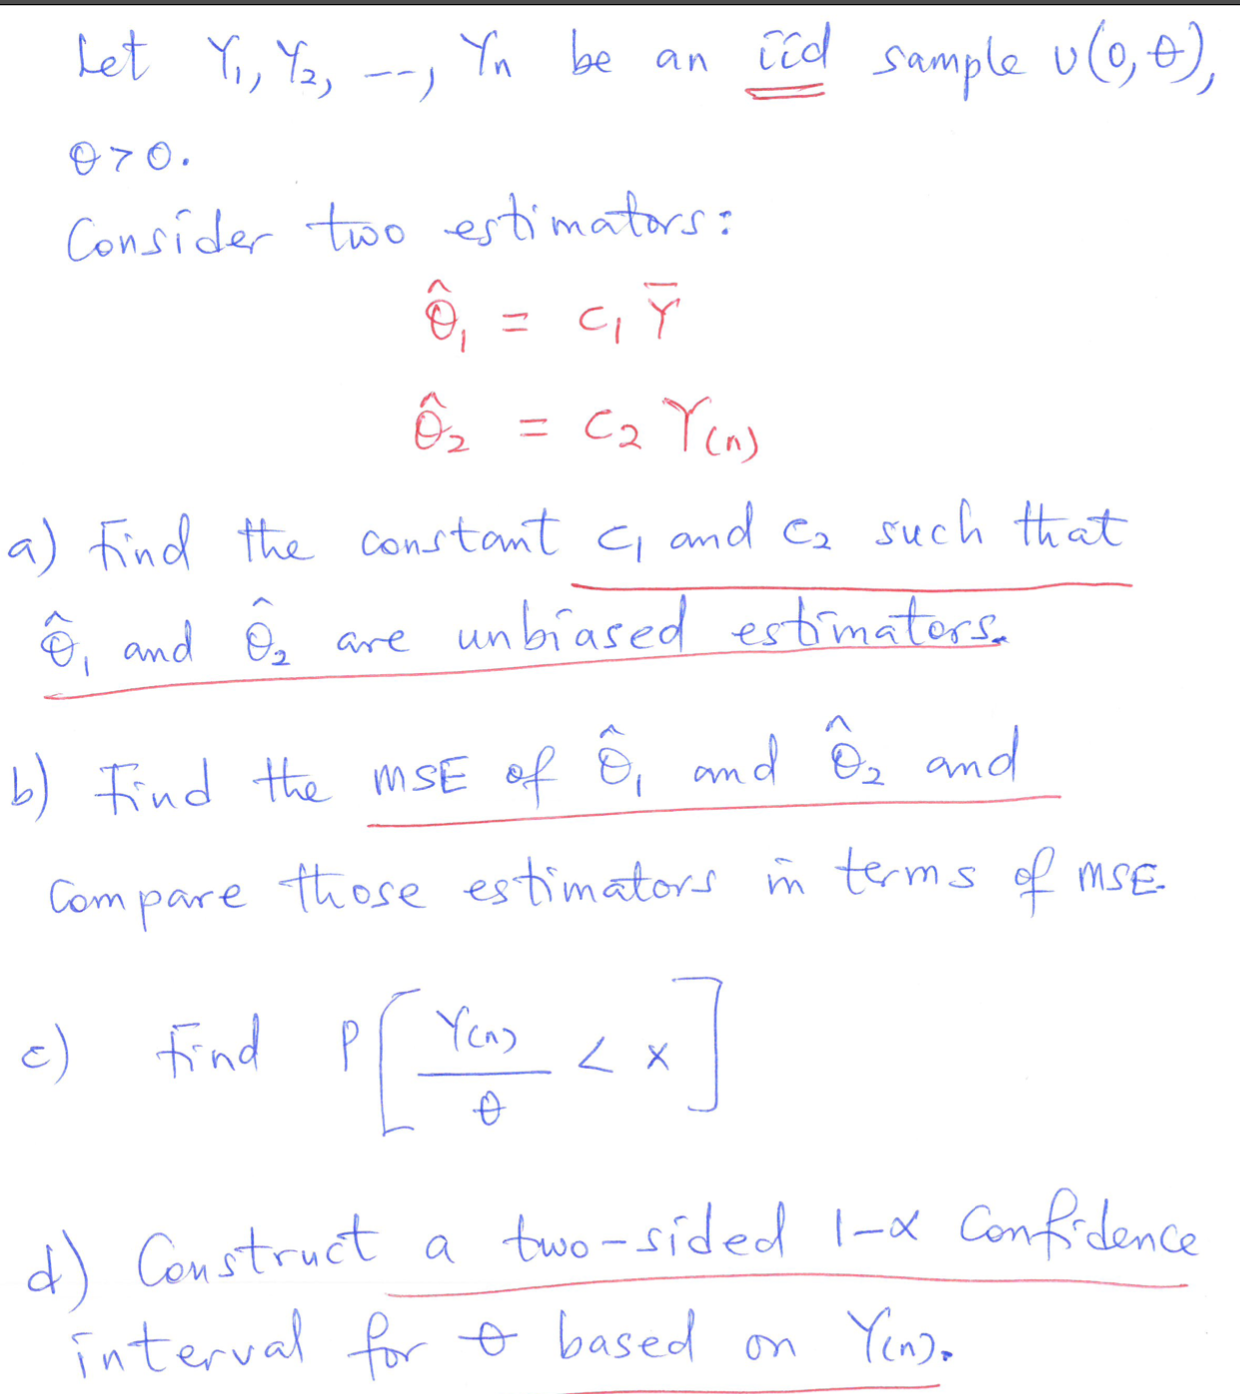 Let Y₁, Y₂, ---, Yn be an iid sample U(0, θ),
θ > 0.
Consider two estimators:
θ̂₁ = c₁ Ȳ
θ̂₂ = c₂ Y(n)
a) Find the constant c₁ and c₂ such that
θ̂₁ and θ̂₂ are unbiased estimators.
b) Find the MSE of θ̂₁ and θ̂₂ and
Compare those estimators in terms of MSE.
c) Find P[Y(n)/θ < x]
d) Construct a two-sided 1-α Confidence
interval for θ based on Y(n).